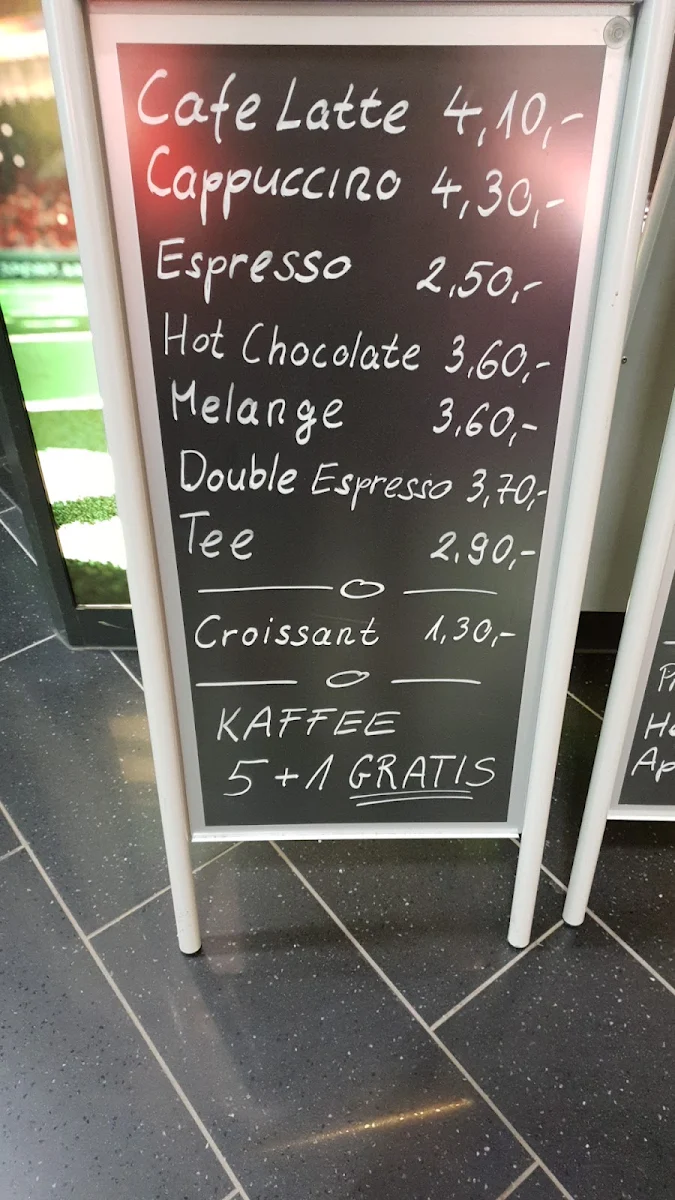 Cafe Latte 4,10,-
Cappuccino 4,30,-
Espresso 2,50,-
Hot Chocolate 3,60,-
Melange 3,60,-
Double Espresso 3,70,-
Tee 2,90,-
Croissant 1,30,-
KAFFEE
5+1 GRATIS